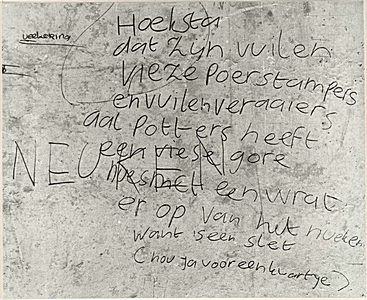 verkering
Hoeksta
dat zijn vuilen
vieze Poerstampers
en vuilen veraaiers
aal Potters heeft
een viese gore
NEUKEN
met een wrat
er op van het nueken
want is een slet
(nou ja voor een kwartje)